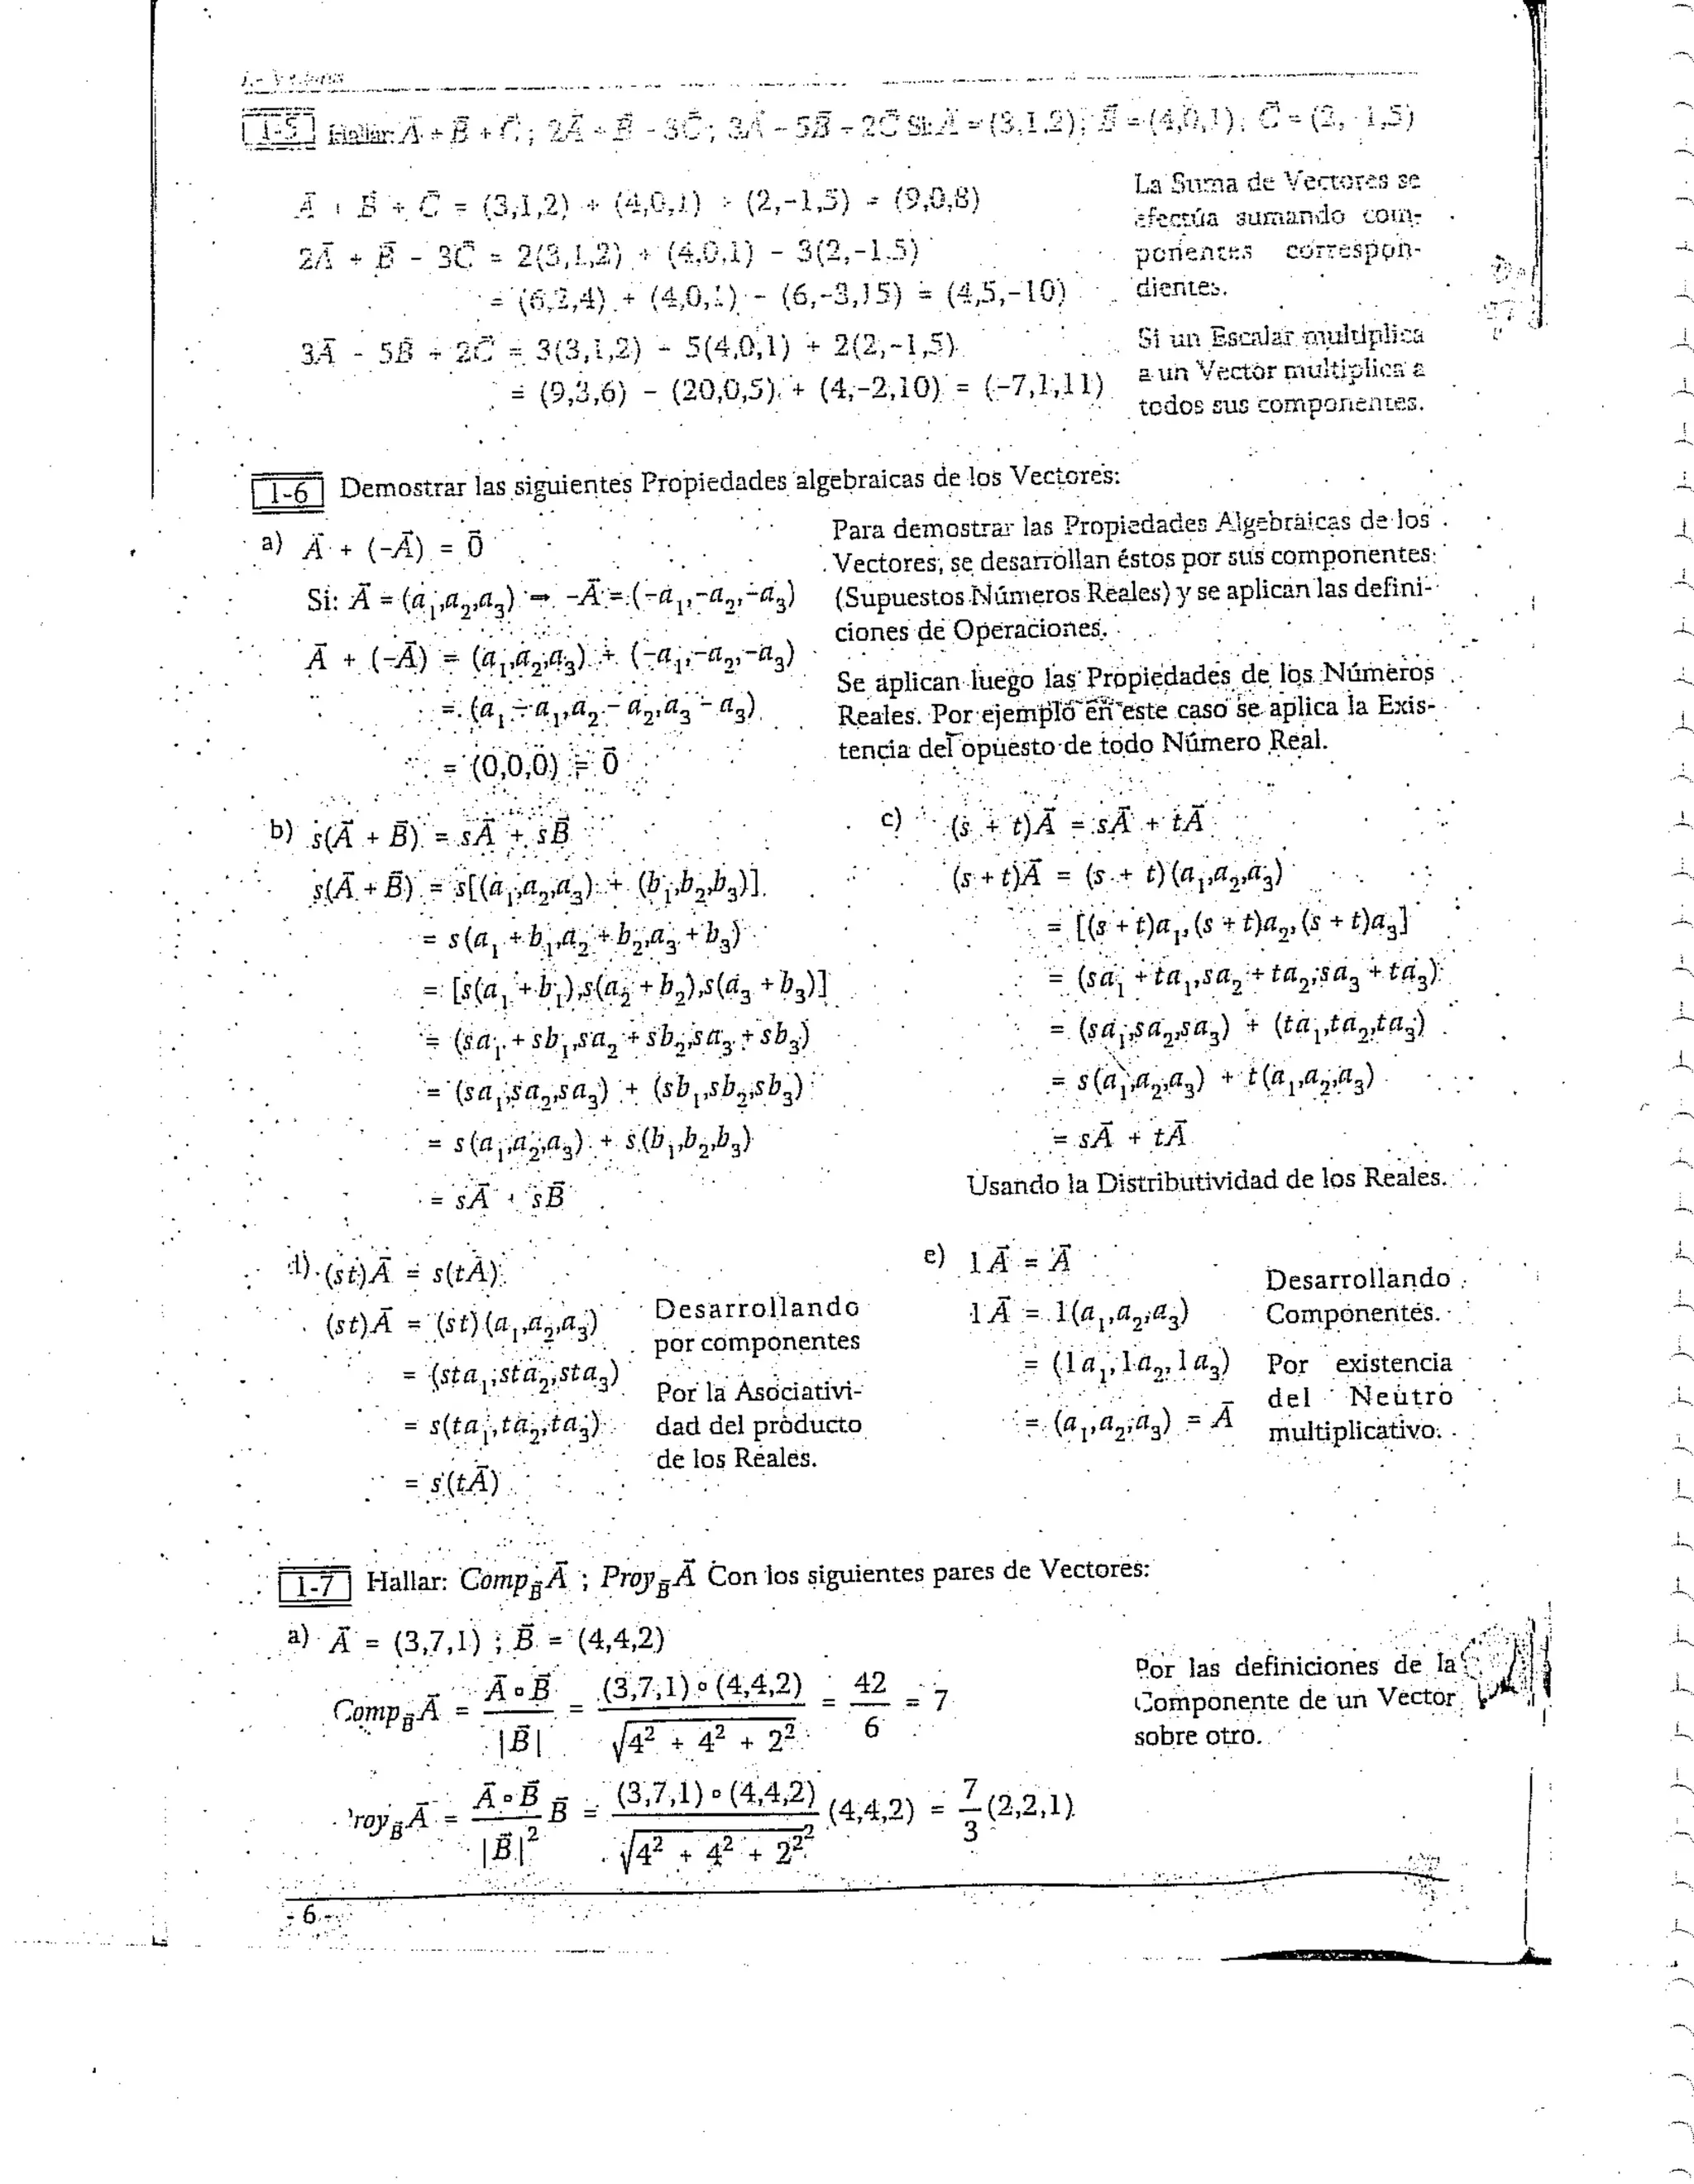 1.- Vectores
1-5 Hallar: Ā + B̄ + C̄ ; 2Ā + B̄ - 3C̄ ; 3Ā - 5B̄ + 2C̄ Si: Ā = (3,1,2); B̄ = (4,0,1); C̄ = (2, -1,5)
Ā + B̄ + C̄ = (3,1,2) + (4,0,1) + (2,-1,5) = (9,0,8)
2Ā + B̄ - 3C̄ = 2(3,1,2) + (4,0,1) - 3(2,-1,5)
= (6,2,4) + (4,0,1) - (6,-3,15) = (4,5,-10)
La Suma de Vectores se
efectúa sumando com-
ponentes correspon-
dientes.
3Ā - 5B̄ + 2C̄ = 3(3,1,2) - 5(4,0,1) + 2(2,-1,5)
= (9,3,6) - (20,0,5) + (4,-2,10) = (-7,1,11)
Si un Escalar multiplica
a un Vector multiplica a
todos sus componentes.
1-6 Demostrar las siguientes Propiedades algebraicas de los Vectores:
a) Ā + (-Ā) = 0̄
Si: Ā = (a₁,a₂,a₃) ⇒ -Ā = (-a₁,-a₂,-a₃)
Ā + (-Ā) = (a₁,a₂,a₃) + (-a₁,-a₂,-a₃)
= (a₁ - a₁,a₂ - a₂,a₃ - a₃)
= (0,0,0) = 0̄
Para demostrar las Propiedades Algebraicas de los
Vectores, se desarrollan éstos por sus componentes
(Supuestos Números Reales) y se aplican las defini-
ciones de Operaciones.
Se aplican luego las Propiedades de los Números
Reales. Por ejemplo en este caso se aplica la Exis-
tencia del opuesto de todo Número Real.
b) s(Ā + B̄) = sĀ + sB̄
s(Ā + B̄) = s[(a₁,a₂,a₃) + (b₁,b₂,b₃)]
= s(a₁ + b₁,a₂ + b₂,a₃ + b₃)
= [s(a₁ + b₁),s(a₂ + b₂),s(a₃ + b₃)]
= (sa₁ + sb₁,sa₂ + sb₂,sa₃ + sb₃)
= (sa₁,sa₂,sa₃) + (sb₁,sb₂,sb₃)
= s(a₁,a₂,a₃) + s(b₁,b₂,b₃)
= sĀ + sB̄
c) (s + t)Ā = sĀ + tĀ
(s + t)Ā = (s + t)(a₁,a₂,a₃)
= [(s + t)a₁,(s + t)a₂,(s + t)a₃]
= (sa₁ + ta₁,sa₂ + ta₂,sa₃ + ta₃)
= (sa₁,sa₂,sa₃) + (ta₁,ta₂,ta₃)
= s(a₁,a₂,a₃) + t(a₁,a₂,a₃)
= sĀ + tĀ
Usando la Distributividad de los Reales.
d) (st)Ā = s(tĀ)
(st)Ā = (st)(a₁,a₂,a₃)
= (sta₁,sta₂,sta₃)
= s(ta₁,ta₂,ta₃)
= s(tĀ)
Desarrollando
por componentes
Por la Asociativi-
dad del producto
de los Reales.
e) 1Ā = Ā
1Ā = 1(a₁,a₂,a₃)
= (1a₁,1a₂,1a₃)
= (a₁,a₂,a₃) = Ā
Desarrollando
Componentes.
Por existencia
del Neutro
multiplicativo.
1-7 Hallar: Comp_B̄ Ā ; Proy_B̄ Ā Con los siguientes pares de Vectores:
a) Ā = (3,7,1) ; B̄ = (4,4,2)
Comp_B̄ Ā = Ā∘B̄ / |B̄| = (3,7,1)∘(4,4,2) / √(4² + 4² + 2²) = 42/6 = 7
Por las definiciones de la
Componente de un Vector
sobre otro.
'roy_B̄ Ā = Ā∘B̄ / |B̄|² B̄ = (3,7,1)∘(4,4,2) / √(4² + 4² + 2²)² (4,4,2) = 7/3 (2,2,1)
- 6 -